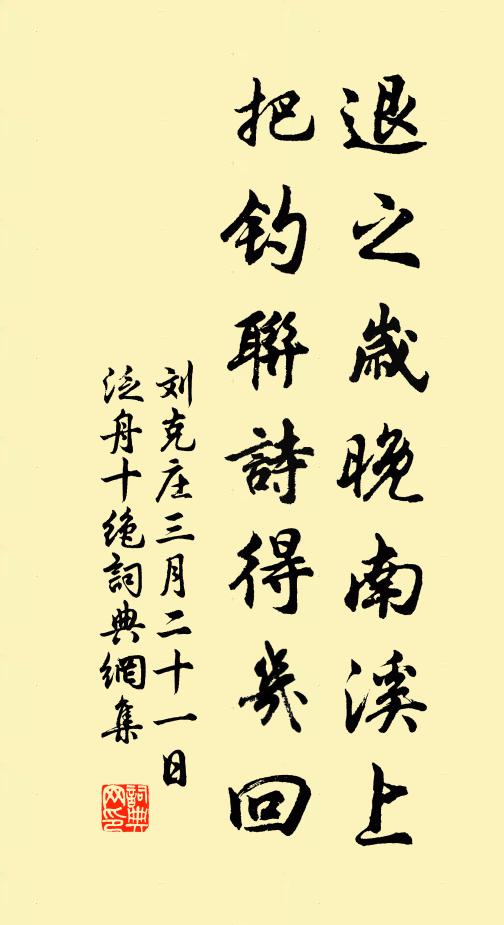 退之歲晚南溪上
把釣聯詩得幾回
刘克庄三月二十一日
泛舟十绝詞典網集
詞典網印